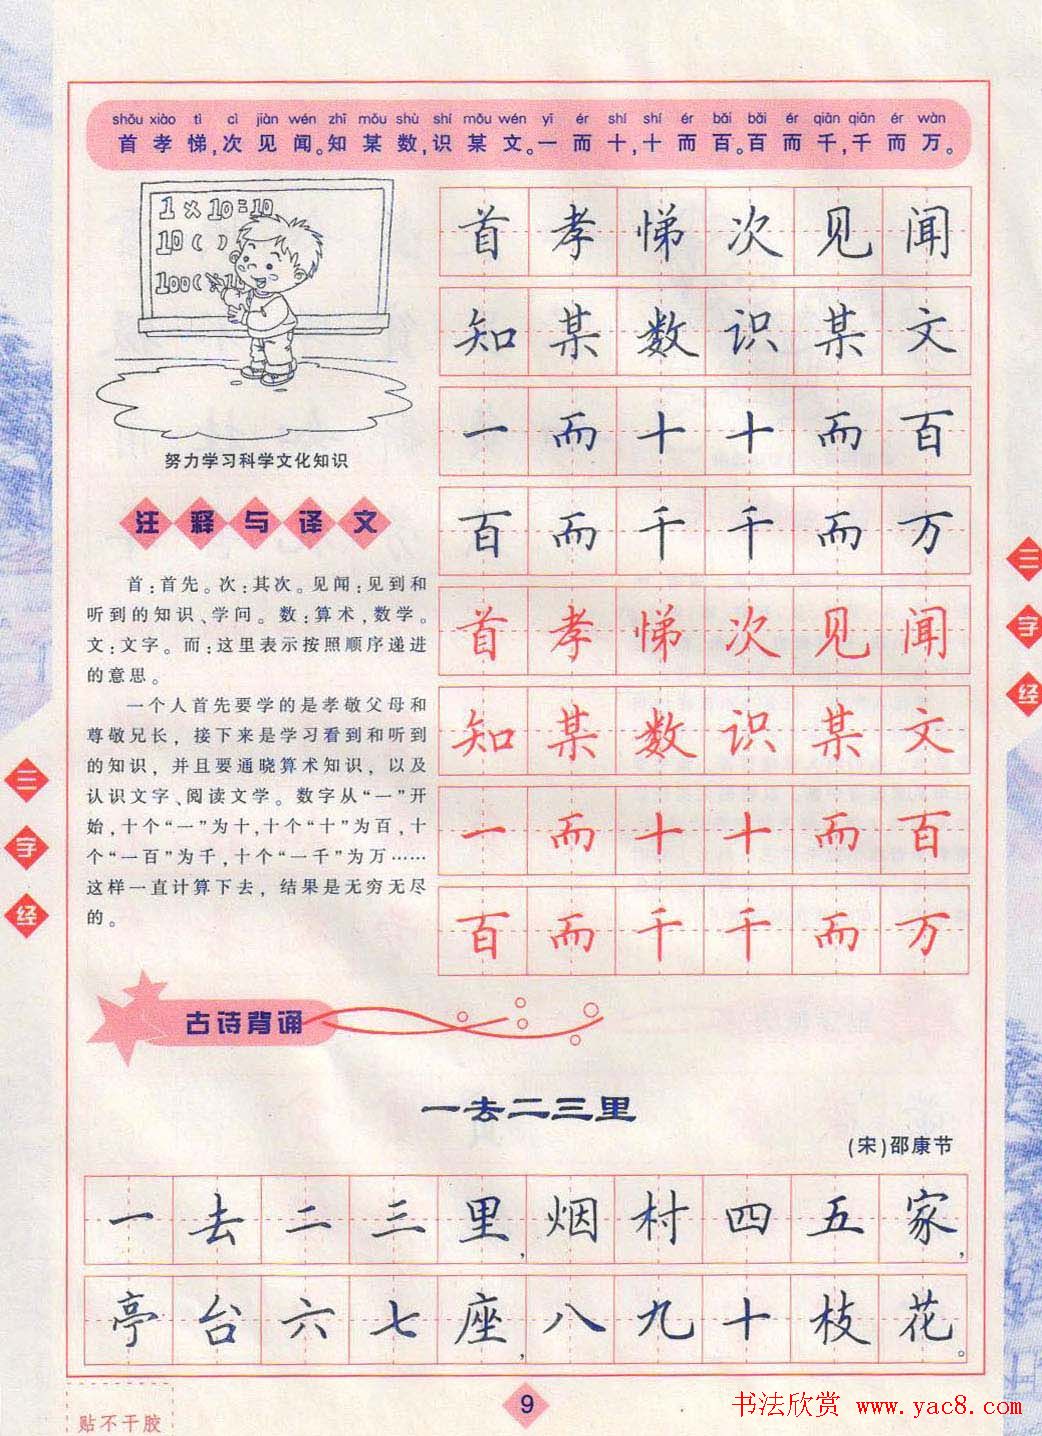 shǒu xiào tì cì jiàn wén zhī mǒu shù shí mǒu wén yī ér shí shí ér bǎi bǎi ér qiān qiān ér wàn
首孝悌,次见闻。知某数,识某文。一而十,十而百。百而千,千而万。
1×10=10
10( )
100( ×10
努力学习科学文化知识
注释与译文
首:首先。次:其次。见闻:见到和
听到的知识、学问。数:算术,数学。
文:文字。而:这里表示按照顺序递进
的意思。
一个人首先要学的是孝敬父母和
尊敬兄长，接下来是学习看到和听到
的知识，并且要通晓算术知识，以及
认识文字、阅读文学。数字从“一”开
始,十个“一”为十,十个“十”为百,十
个“一百”为千,十个“一千”为万……
这样一直计算下去，结果是无穷无尽
的。
首孝悌次见闻
知某数识某文
一而十十而百
百而千千而万
首孝悌次见闻
知某数识某文
一而十十而百
百而千千而万
三字经
三字经
古诗背诵
一去二三里
(宋)邵康节
一去二三里,烟村四五家,
亭台六七座,八九十枝花。
贴不干胶
9
书法欣赏 www.yac8.com